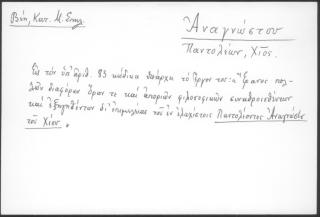 Βιβλ. Κατ. Μ. Σπηλ.
Ἀναγνώστου
Παντολέων, Χῖος.
Εἰς τὸν ὑπ' ἀριθ. 83 κώδικα ὑπάρχει τὸ ἔργον του: "Ἔρανος πολ-
λῶν διαφόρων ὅρων τε καὶ ἀποριῶν φιλοσοφικῶν συναθροισθέντων
καὶ ἐξηγηθέντων δι' ἐπιμελείας τοῦ ἐν ἐλαχίστοις Παντολέοντος Ἀναγνώστου
τοῦ Χίου.